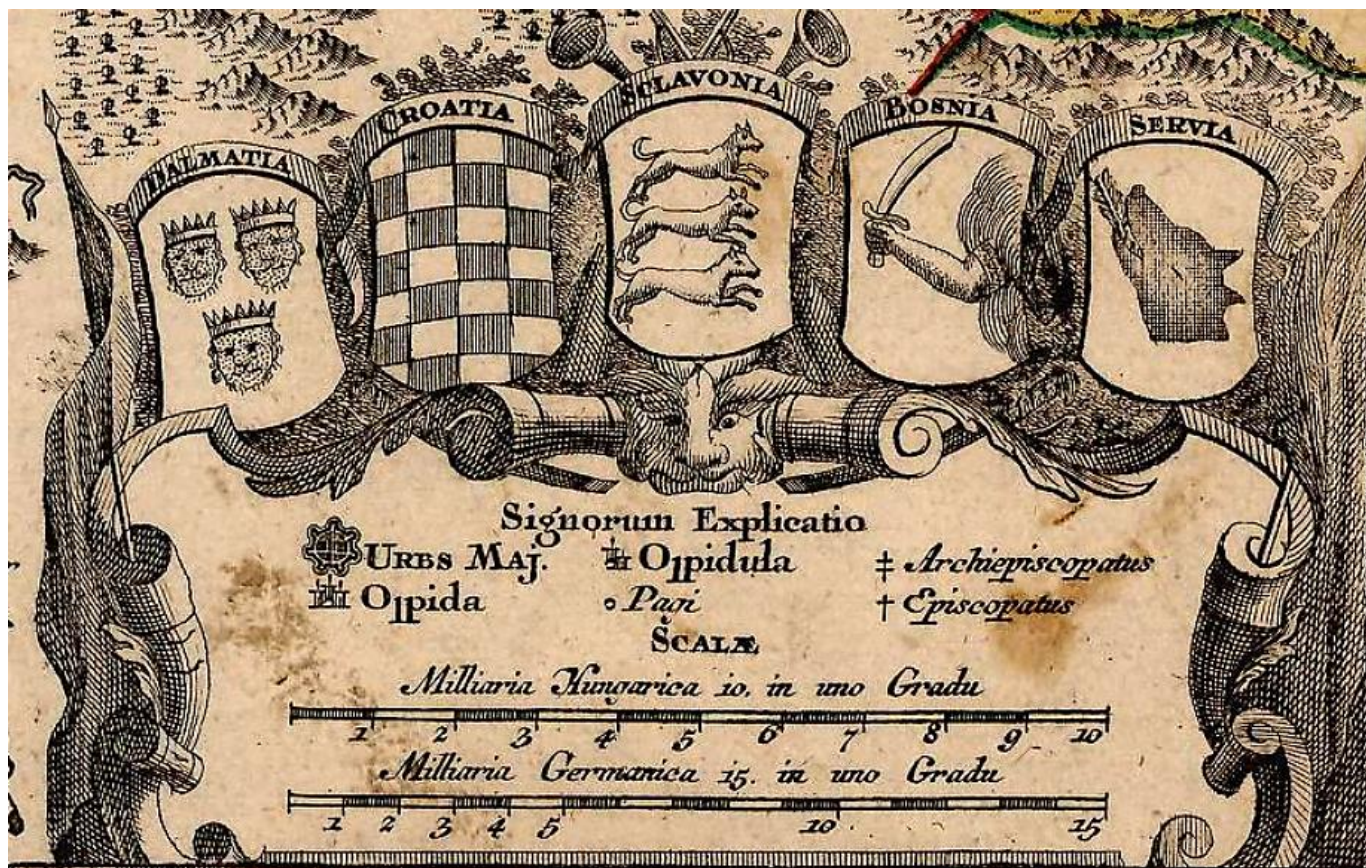 DALMATIA
CROATIA
SCLAVONIA
BOSNIA
SERVIA
Signorum Explicatio
URBS MAJ. Oppidula ‡ Archiepiscopatus
Oppida Pagi † Episcopatus
SCALÆ
Milliaria Hungarica 10. in uno Gradu
1 2 3 4 5 6 7 8 9 10
Milliaria Germanica 15. in uno Gradu
1 2 3 4 5 10 15